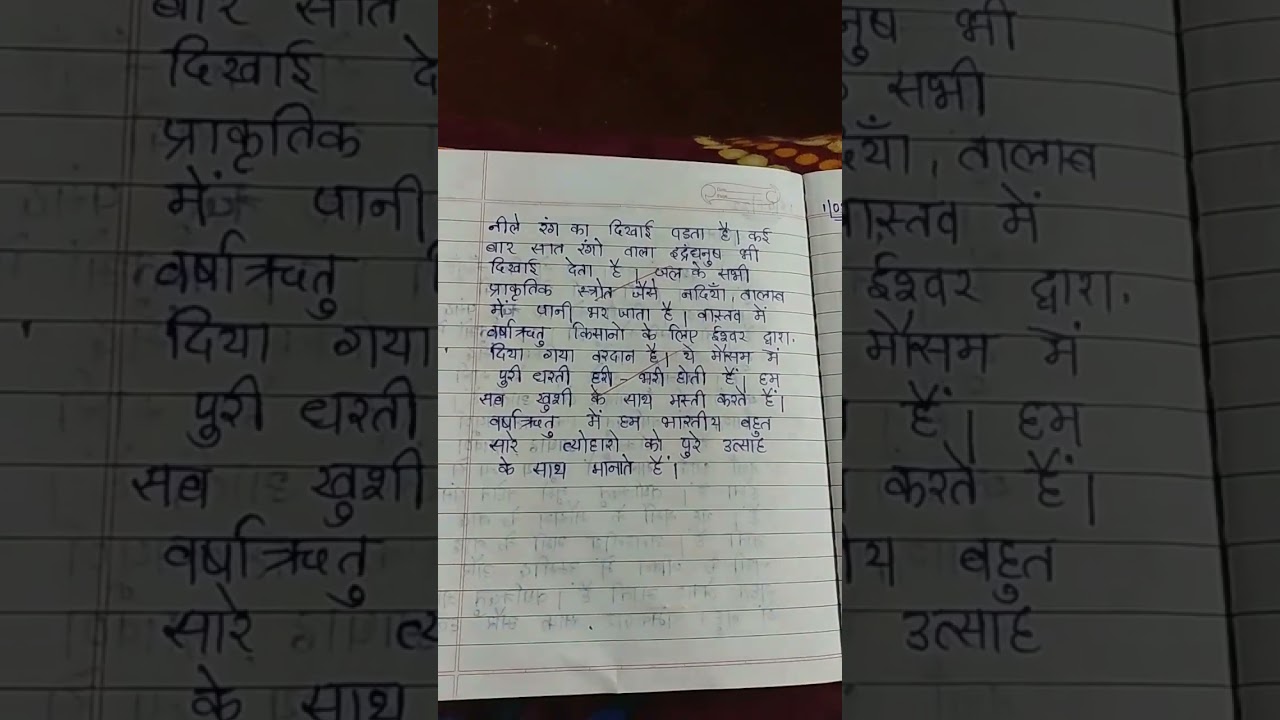 नीले रंग का दिखाई पडता है। कई
बार सात रंगो वाला इद्रंधनुष भी
दिखाई देता है। जल के सभी
प्राकृतिक स्त्रोत जैसे नदियाँ, तालाब
में पानी भर जाता है। वास्तव में
वर्षाऋतु किसानो के लिए ईश्वर द्वारा.
दिया गया वरदान है। ये मौसम में
पुरी धरती हरी - भरी होती हैं। हम
सब खुशी के साथ मस्ती करते हैं।
वर्षाऋतु में हम भारतीय बहुत
सारे त्योहारो को पुरे उत्साह
के साथ मानाते हैं।